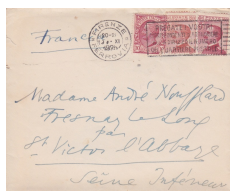 France
FIRENZE
FERROVIA
Madame André Noufflard
Fresnay le Long
par
St Victor l'Abbaye
Seine Inférieure